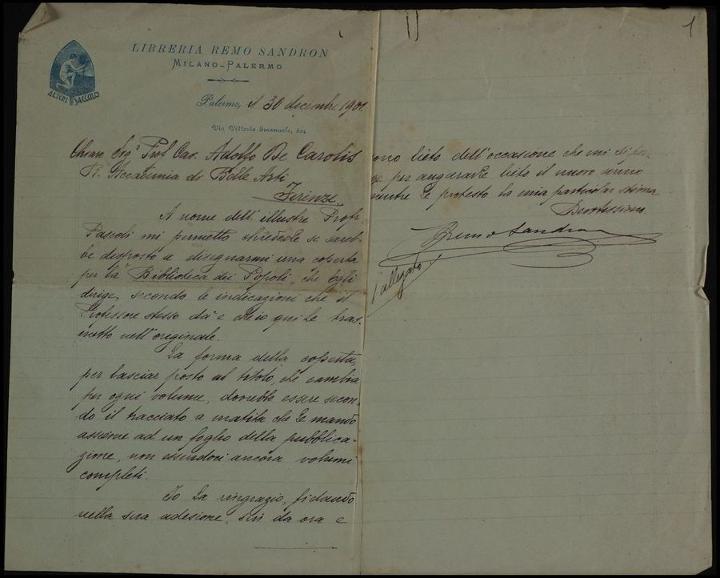 LIBRERIA REMO SANDRON
MILANO-PALERMO
ALTERI SAECULO
Palermo, il 30 dicembre 1901
Via Vittorio Emanuele, 324
Chiaro Sig. Prof. Cav. Adolfo De Carolis
R. Accademia di Belle Arti
Firenze
A nome dell'illustre Prof.
Pascoli mi permetto chiederle se sareb-
be disposto a disegnarmi una coperta
per la "Biblioteca dei Popoli", che Egli
dirige, secondo le indicazioni che il
Professore stesso dà e che io qui le tras-
metto nell'originale.
La forma della coperta,
per lasciar posto al titolo, che cambia
per ogni volume, dovrebbe essere secon-
do il tracciato a matita che le mando
assieme ad un foglio della pubblica-
zione, non essendovi ancora volumi
completi.
Io La ringrazio, fidando
nella sua adesione, sin da ora e
sono lieto dell'occasione che mi si por-
ge per augurarle lieto il nuovo anno
mentre le protesto la mia particolar stima
Devotissimo
Remo Sandron
1 allegato
1